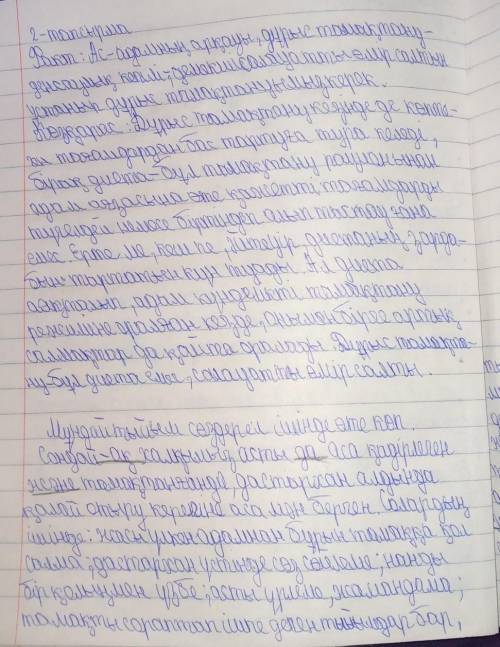 2-тапсырма
Факт: Ас-адамның арқауы, дұрыс тамақтану-
денсаулық кепілі, демек салауатты өмір салтын
ұстанып дұрыс тамақтануымыз керек.
Көзқарас: Дұрыс тамақтану кезінде де көпте-
ген тағамдардан бас тартуға тура келеді,
бірақ диета-бұл тамақтану рационынан
адам ағзасына өте қажетті тағамдарды
түгелдей немесе біртіндеп алып тастау ғана
емес. Ерте ме, кеш пе, әйтеуір диетаның зарда-
бын тартатын күн туады. Ал диета
аяқталып, адам күнделікті тамақтану
режиміне оралған кезде, онымен бірге артық
салмақтар да қайта оралады. Дұрыс тамақта-
ну-бұл диета емес, салауатты өмір салты.
Мұндай тыйым сөздер ел ішінде өте көп.
Сондай-ақ халқымыз асты да аса қадірлеген
және тамақтанғанда, дастарқан алдында
қалай отыру керегіне аса мән берген. Солардың
ішінде: жасы үлкен адамнан бұрын тамаққа қол
салма; дастарқан үстінде сөз сөйлеме; нанды
бір қолыңмен үзбе; асты үрлеме, жамандама;
тамақты сораптап ішпе деген тыйымдар бар,